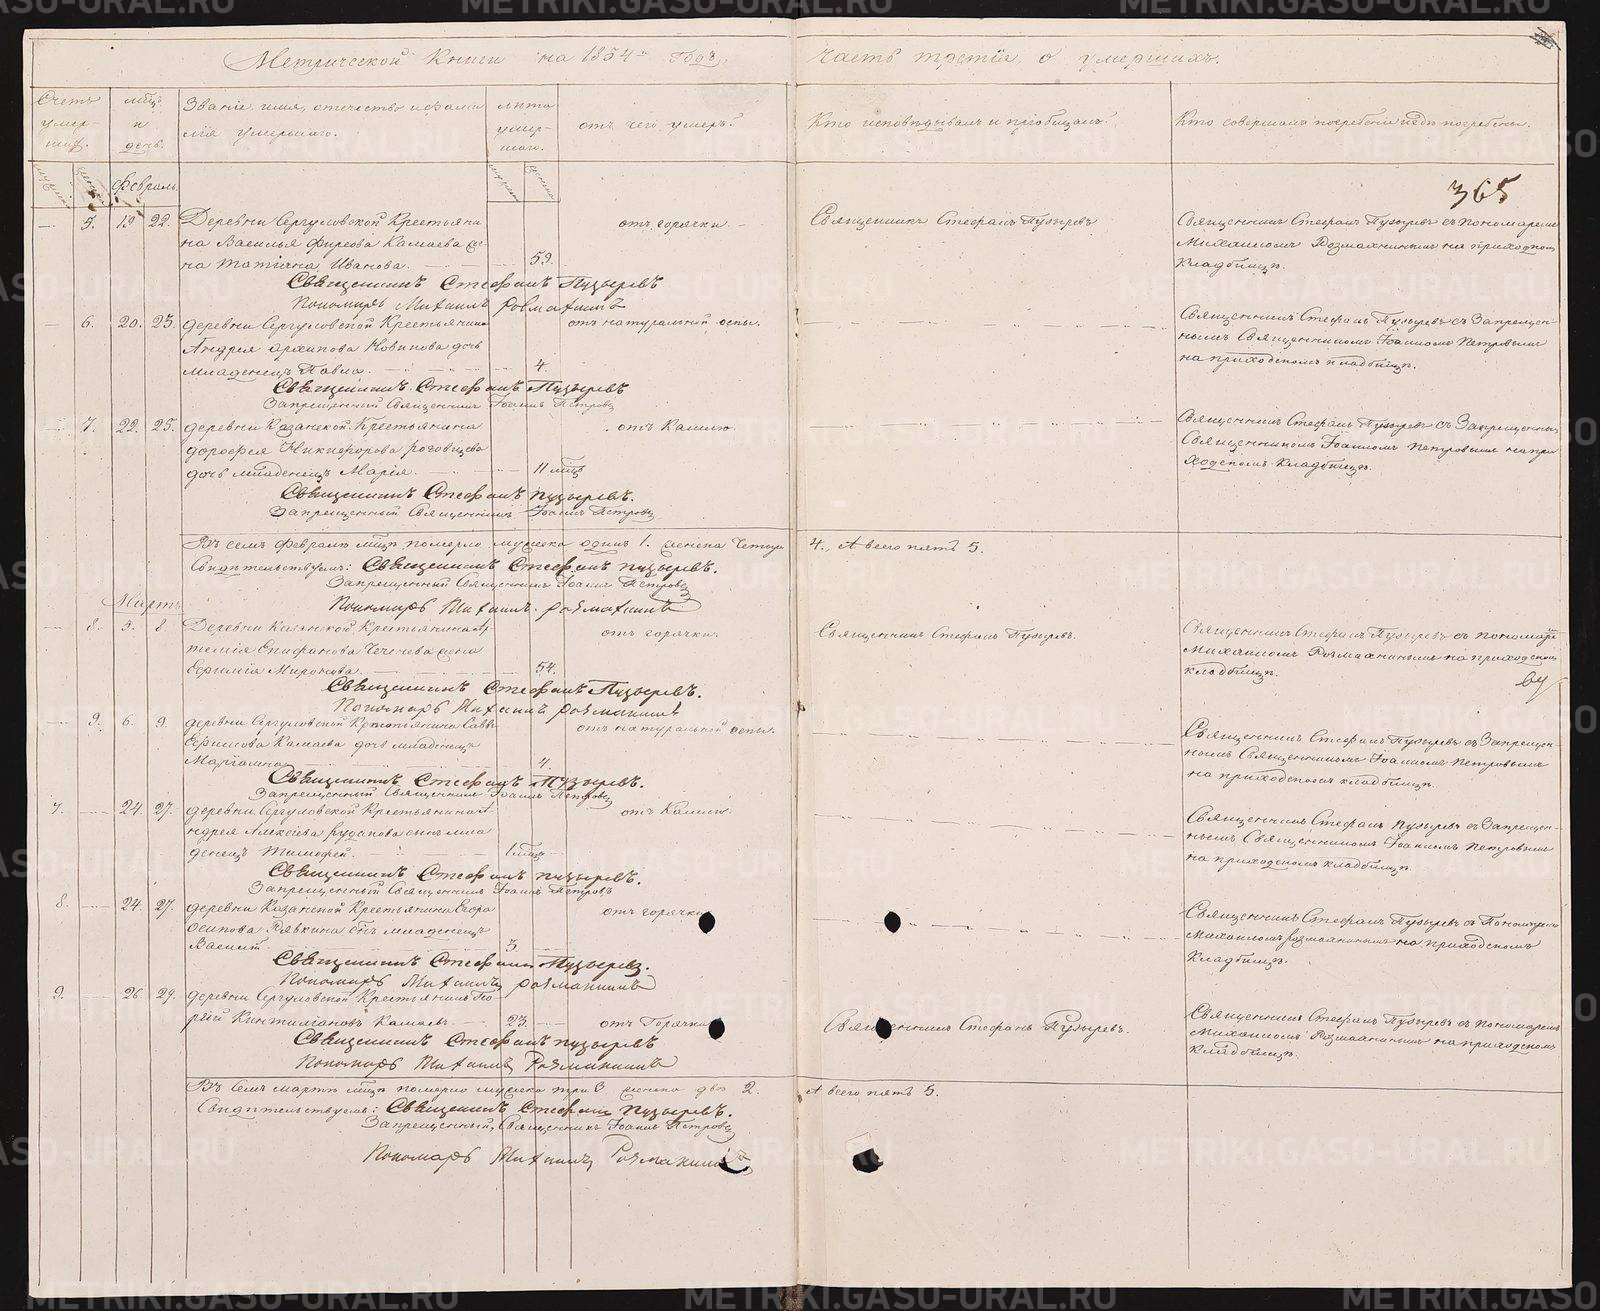 Метрической книги на 1854й годъ, часть третіе, о умершихъ.
Счетъ умер-шихъ.
мѣсцъ и день.
Званіе, имя, отечество и фами-
лія умершаго.
лѣта умер-шаго.
отъ чего умеръ?
Кто исповѣдывалъ и пріобщалъ?
Кто совершалъ погребеніе и гдѣ погребены.
Февраль.
365
5. 19 22. Деревни Сергуловской Крестьяни-
на Василья Фирсова Камаева же-
на Татіана Иванова. 59.
отъ горячки.
Священникъ Стефанъ Пузыревъ
Священникъ Стефанъ Пузыревъ съ пономаремъ
Михаиломъ Розмахнинымъ на приходскомъ
кладбищѣ.
Священникъ Стефанъ Пузыревъ
Пономарь Михаилъ Розмахнинъ
6. 20. 23. деревни Сергуловской Крестьянина
Андрея Архипова Новикова дочь
младенецъ Павла. 4.
отъ натуральной оспы.
Священникъ Стефанъ Пузыревъ съ Запрещен-
нымъ Священникомъ Іоанномъ Петровымъ
на приходскомъ кладбищѣ.
Священникъ Стефанъ Пузыревъ
Запрещенный Священникъ Іоаннъ Петровъ
7. 22. 25. деревни Казанской Крестьянина
Дорофея Никифорова
дочь младенецъ Марія. 11 мѣсц
отъ Кашлю.
Священникъ Стефанъ Пузыревъ съ Запрещеннымъ
Священникомъ Іоанномъ Петровымъ на при-
ходскомъ кладбищѣ.
Священникъ Стефанъ Пузыревъ.
Запрещенный Священникъ Іоаннъ Петровъ
Въ семъ февралѣ мѣсцѣ померло мужеска одинъ 1. женска четыре 4., А всего пять 5.
Свидѣтельствуемъ: Священникъ Стефанъ Пузыревъ.
Запрещенный Священникъ Іоаннъ Петровъ
Пономарь Михаилъ Розмахнинъ
Мартъ
8. 5. 8. Деревни Казанской Крестьянина Ар-
темія Епифанова Чеченева жена
Евфимія Миронова. 54.
отъ горячки.
Священникъ Стефанъ Пузыревъ.
Священникъ Стефанъ Пузыревъ съ пономаремъ
Михаиломъ Розмахнинымъ на приходскомъ
кладбищѣ.
Священникъ Стефанъ Пузыревъ.
Пономарь Михаилъ Розмахнинъ
9. 6. 9. деревни Сергуловской Крестьянина Савв-
Ефимова Камаева дочь младенецъ
Маріамна. 4.
отъ натуральной оспы.
Священникъ Стефанъ Пузыревъ съ Запрещен-
нымъ Священникомъ Іоанномъ Петровымъ
на приходскомъ кладбищѣ.
Священникъ Стефанъ Пузыревъ.
Запрещенный Священникъ Іоаннъ Петровъ
7. 24. 27. деревни Сергуловской Крестьянина А-
ндрея Алексѣева Рудакова сынъ мла-
денецъ Тимофей. 1 мѣсц
отъ Кашлю.
Священникъ Стефанъ Пузыревъ съ Запрещен-
нымъ Священникомъ Іоанномъ Петровымъ
на приходскомъ кладбищѣ.
Священникъ Стефанъ Пузыревъ.
Запрещенный Священникъ Іоаннъ Петровъ
8. 24. 27. деревни Казанской Крестьянина Егора
Осипова Рявкина сынъ младенецъ
Василій 3.
отъ горячки
Священникъ Стефанъ Пузыревъ съ Пономаремъ
Михаиломъ Розмахнинымъ на приходскомъ
кладбищѣ.
Священникъ Стефанъ Пузыревъ.
Пономарь Михаилъ Розмахнинъ
9. 26 29. деревни Сергуловской Крестьянинъ Гео-
ргій Кинтиліановъ Камаевъ 23.
отъ Горячки
Священникъ Стефанъ Пузыревъ.
Священникъ Стефанъ Пузыревъ съ пономаремъ
Михаиломъ Розмахнинымъ на приходскомъ
кладбищѣ.
Священникъ Стефанъ Пузыревъ
Пономарь Михаилъ Розмахнинъ
Въ семъ мартѣ мѣсцѣ померло мужеска три 3 женска двѣ 2. А всего пять 5.
Свидѣтельствуемъ: Священникъ Стефанъ Пузыревъ.
Запрещенный Священникъ Іоаннъ Петровъ
Пономарь Михаилъ Розмахнинъ
METRIKI.GASO-URAL.RU